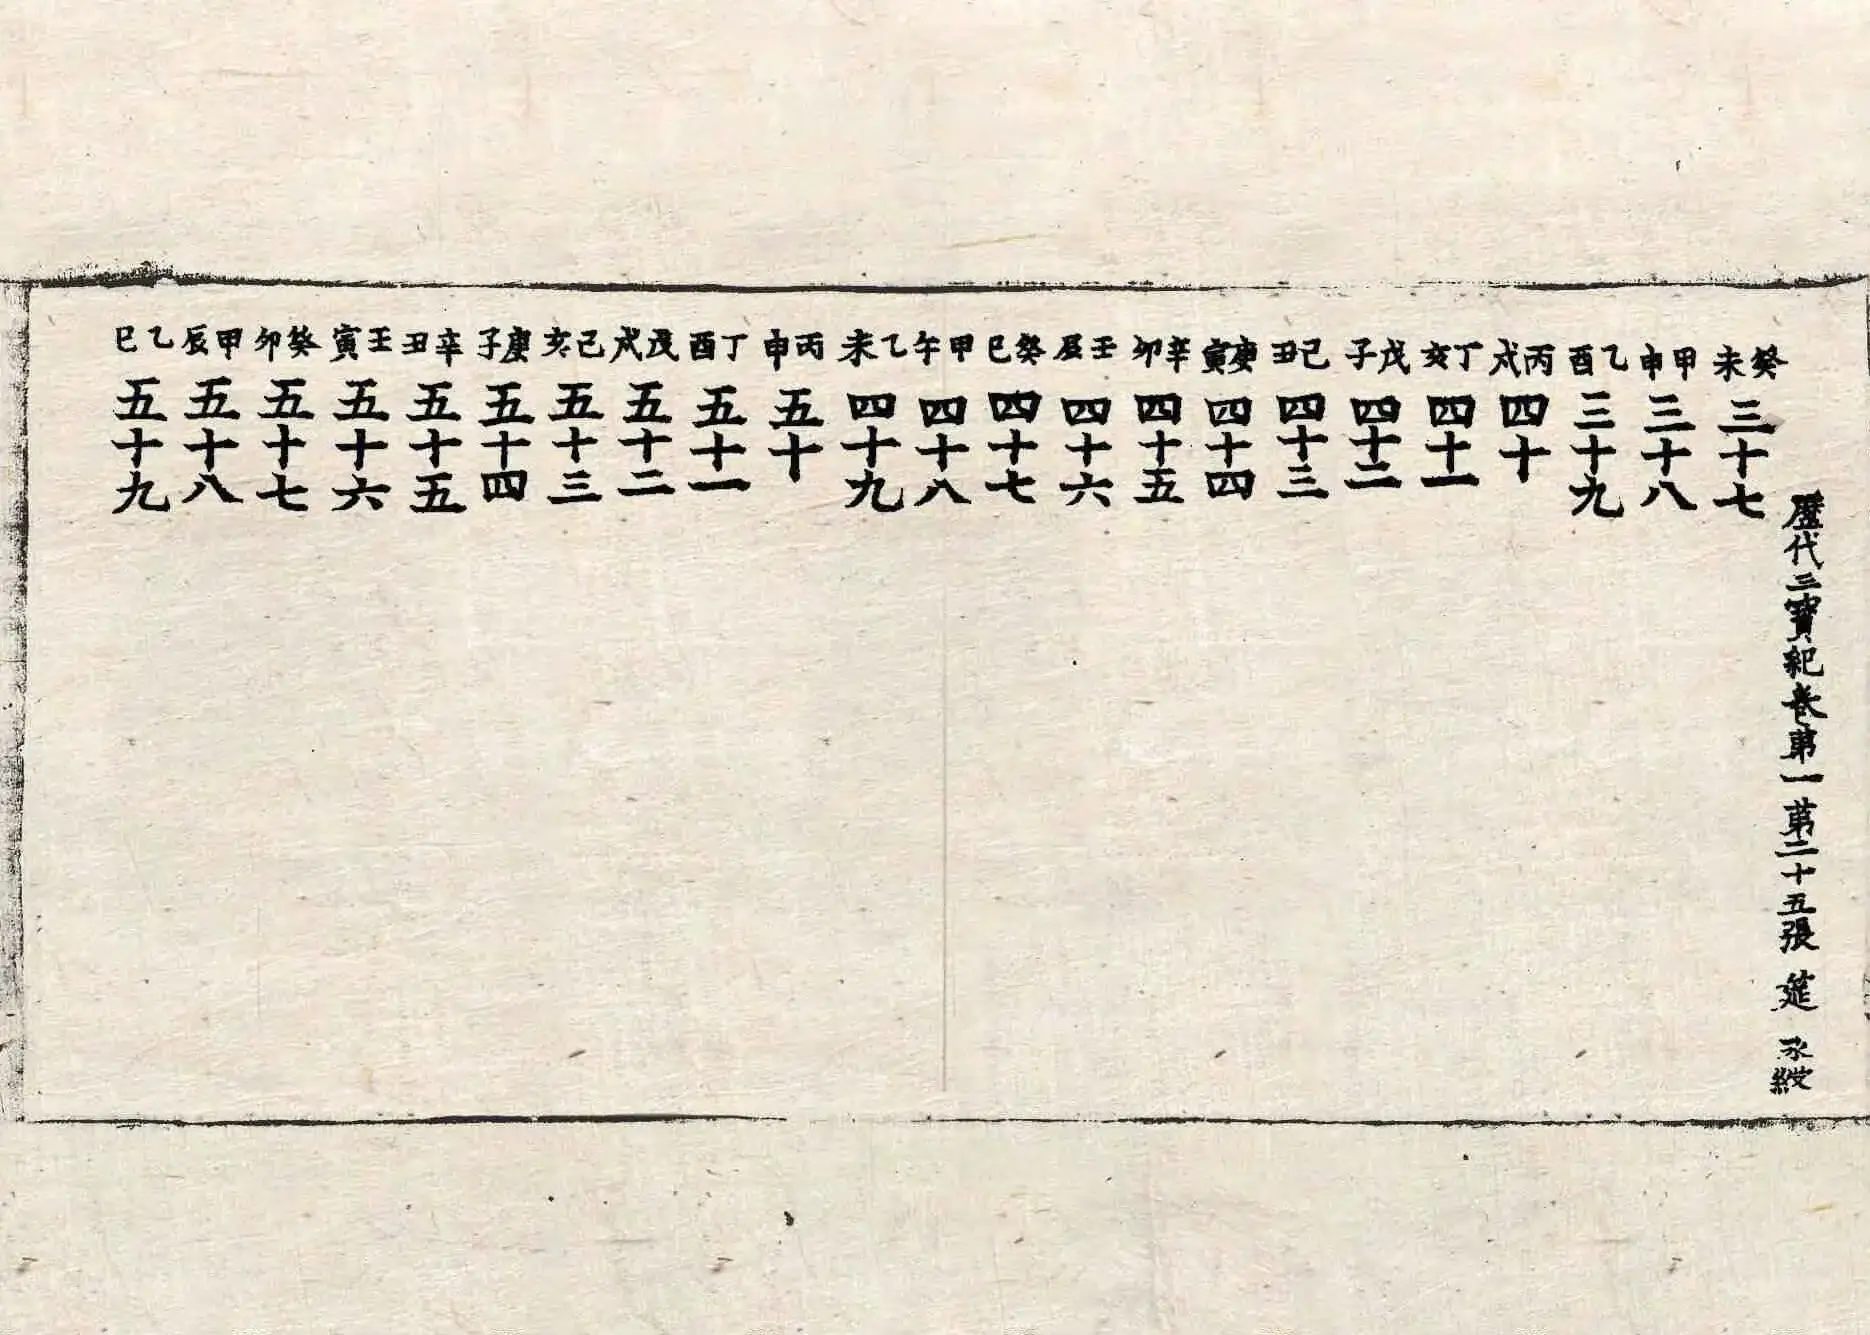 歷代三寶紀卷第一 第二十五張 筵
癸未 三十七
甲申 三十八
乙酉 三十九
丙戌 四十
丁亥 四十一
戊子 四十二
己丑 四十三
庚寅 四十四
辛卯 四十五
壬辰 四十六
癸巳 四十七
甲午 四十八
乙未 四十九
丙申 五十
丁酉 五十一
戊戌 五十二
己亥 五十三
庚子 五十四
辛丑 五十五
壬寅 五十六
癸卯 五十七
甲辰 五十八
乙巳 五十九